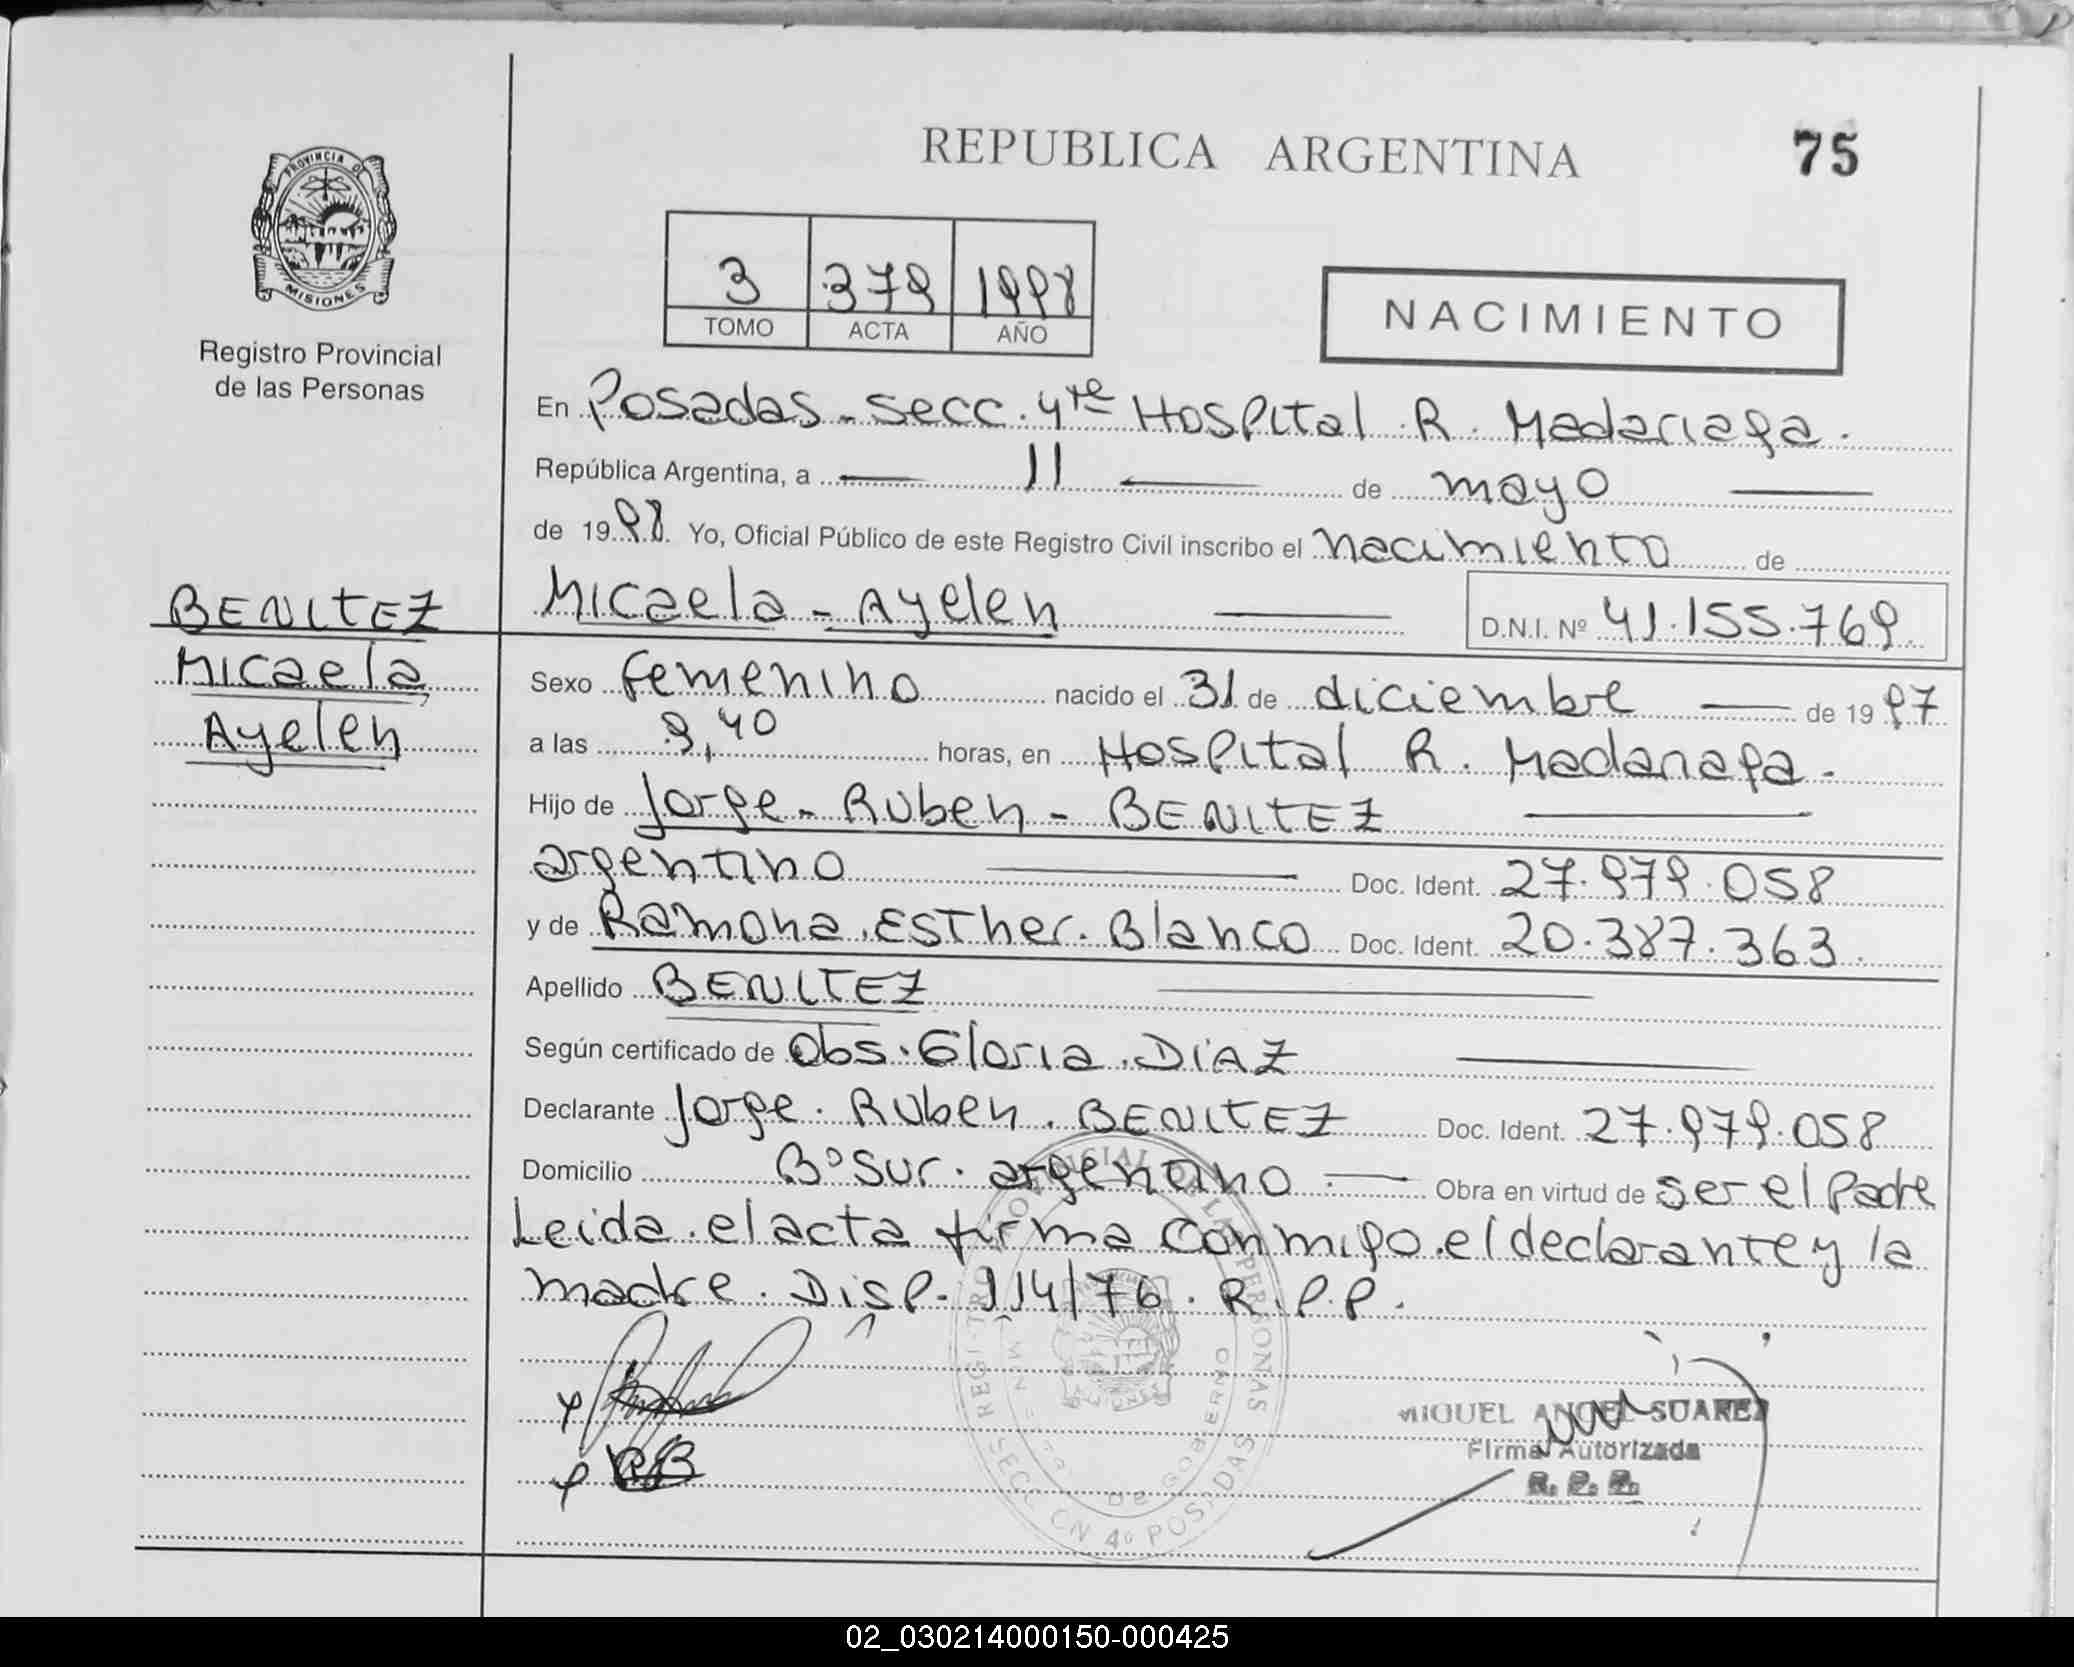 REPUBLICA ARGENTINA
75
PROVINCIA DE
MISIONES
Registro Provincial
de las Personas
3 379 1998
TOMO ACTA AÑO
NACIMIENTO
En Posadas - secc. 4ta Hospital R. Madariaga.
República Argentina, a — 11 — de mayo —
de 1998 Yo, Oficial Público de este Registro Civil inscribo el nacimiento de
Micaela - Ayelen — D.N.I. Nº 41.155.769
BENITEZ
Micaela
Ayelen
Sexo femenino nacido el 31 de diciembre — de 1997
a las 9,40 horas, en Hospital R. Madariaga -
Hijo de Jorge - Ruben - BENITEZ —
argentino — Doc. Ident. 27.979.058
y de Ramona. Esther. Blanco Doc. Ident. 20.387.363.
Apellido BENITEZ —
Según certificado de Obs. Gloria. DiAZ —
Declarante Jorge. Ruben. BENITEZ Doc. Ident. 27.979.058
Domicilio Bº Sur. argentino — Obra en virtud de ser el Padre
Leida. el acta firma conmigo. el declarante y la
madre. Disp. 114/76. R.P.P.
REGISTRO PROVINCIAL DE LAS PERSONAS
DE GOBIERNO
SECCION 4º POSADAS
MIGUEL ANGEL SUAREZ
Firma Autorizada
R. P. P.
02_030214000150-000425